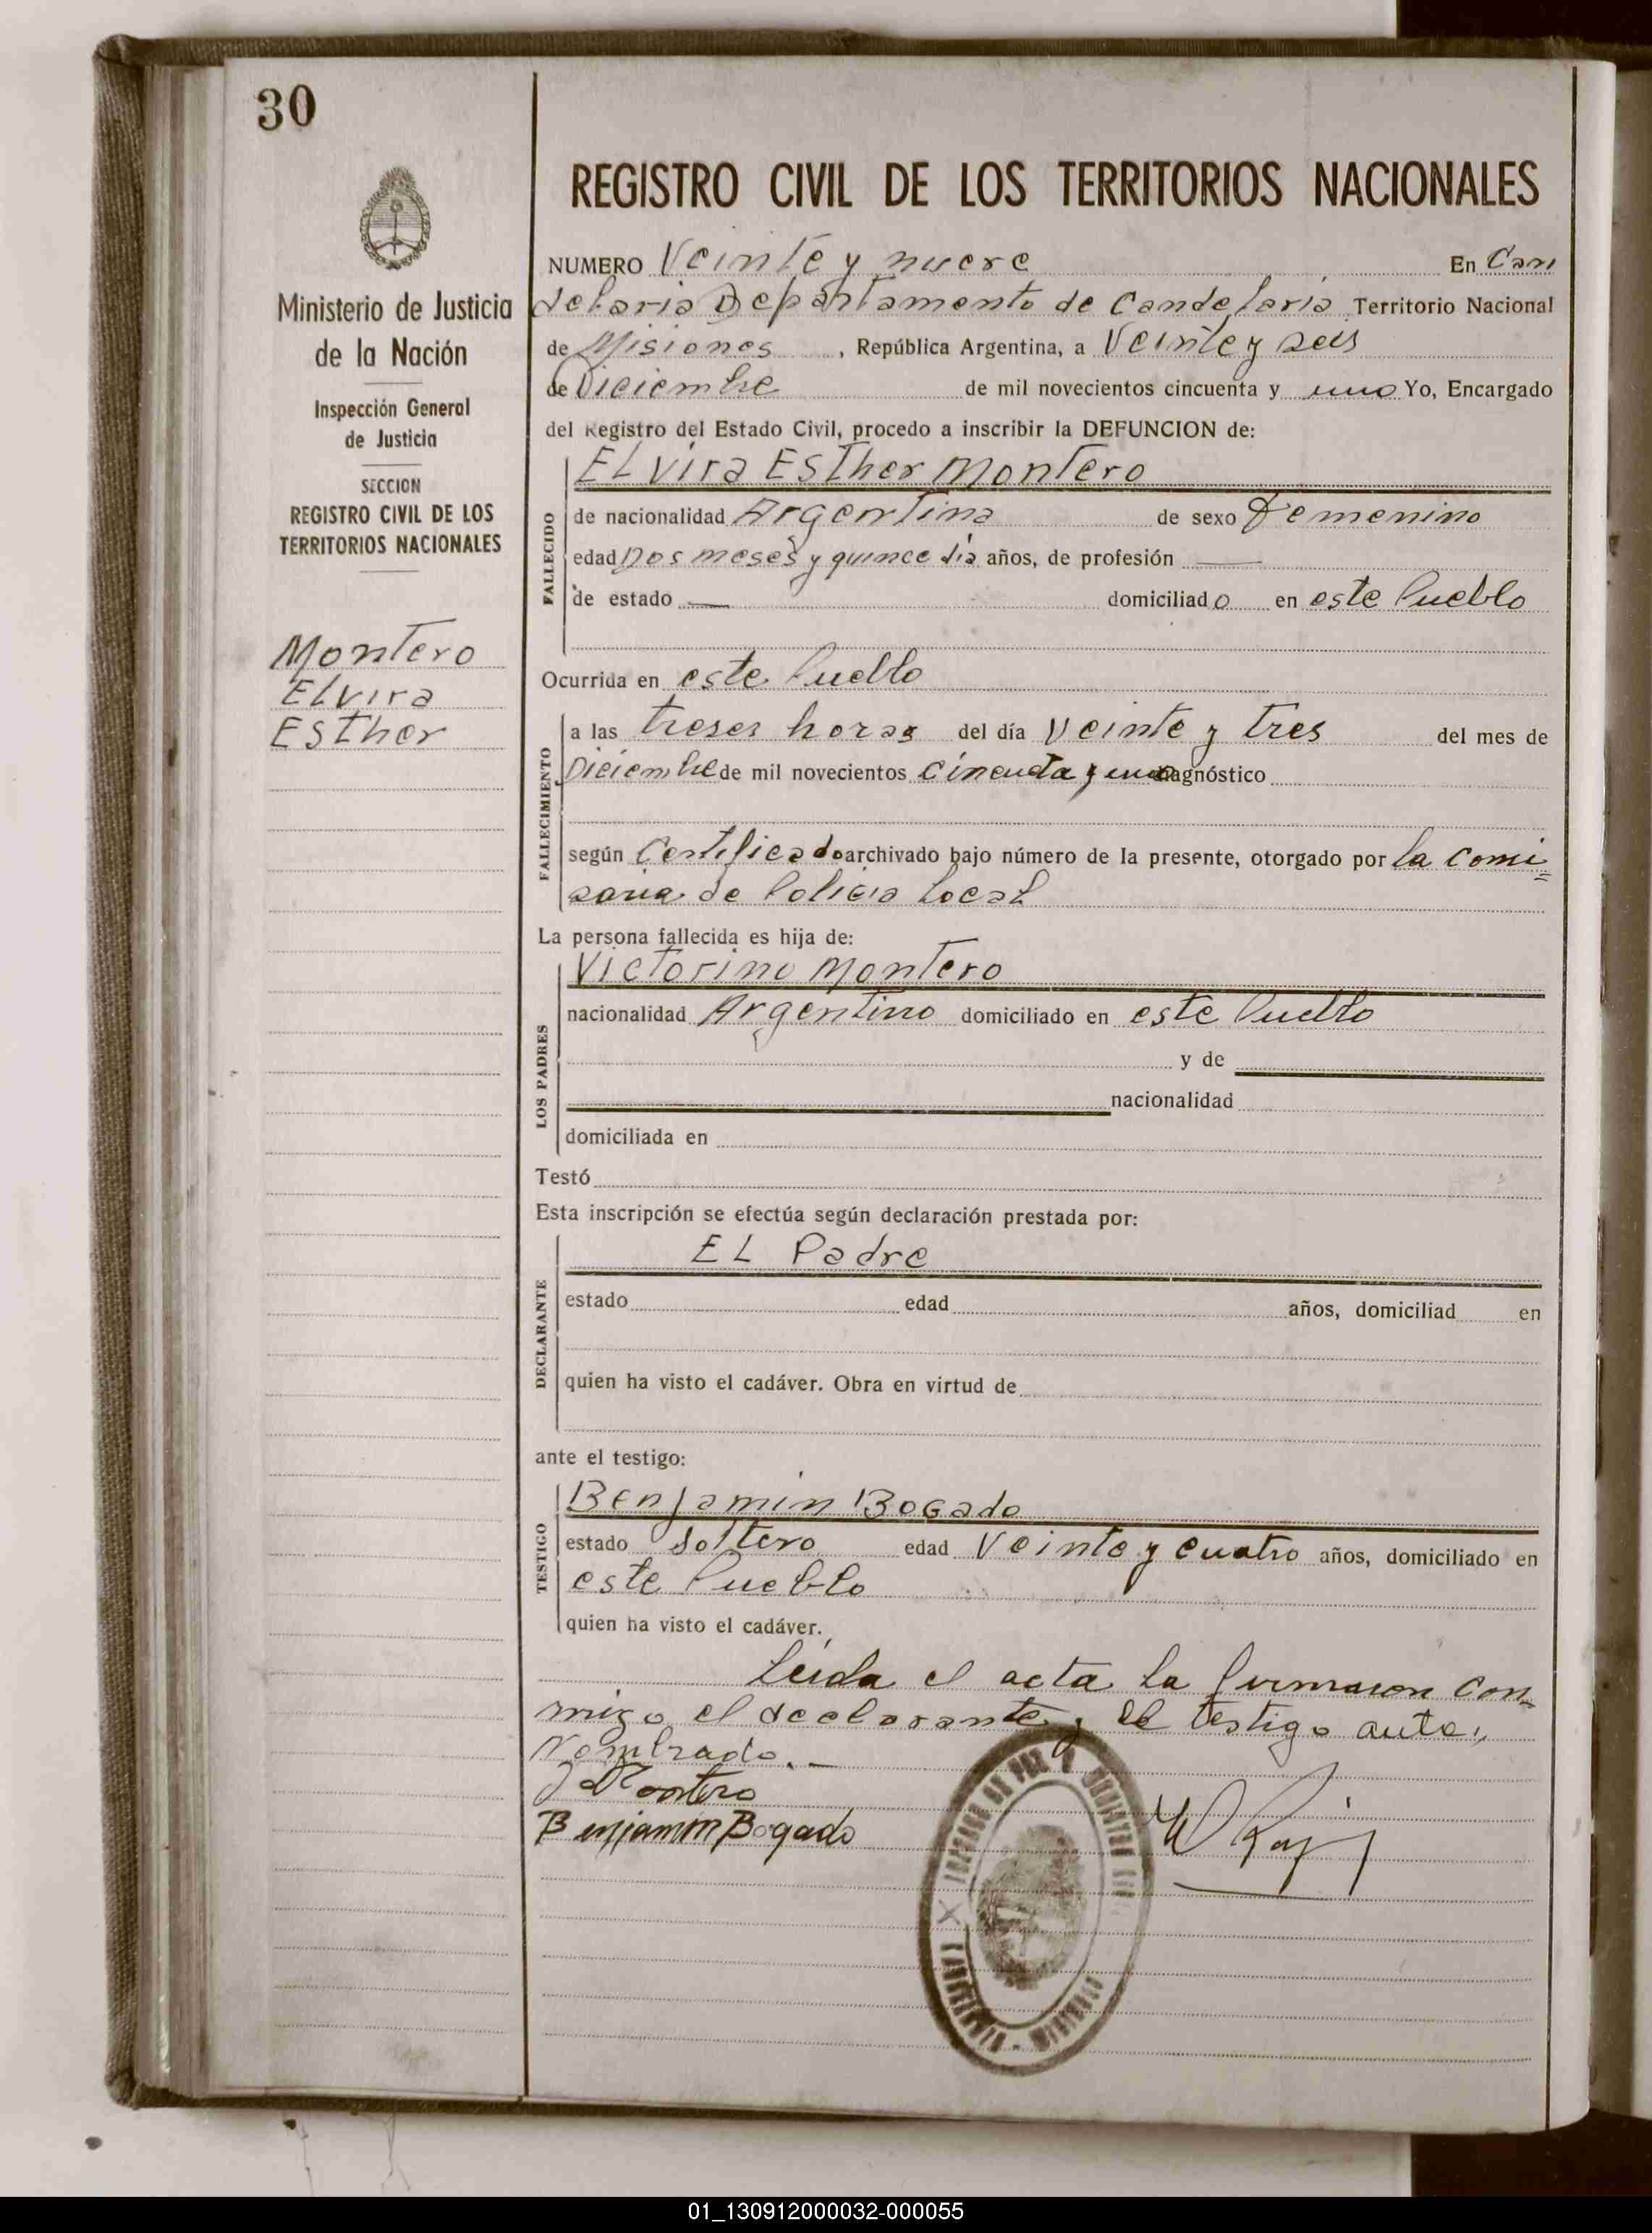 30
Ministerio de Justicia
de la Nación
Inspección General
de Justicia
SECCION
REGISTRO CIVIL DE LOS
TERRITORIOS NACIONALES
Montero
Elvira
Esther
REGISTRO CIVIL DE LOS TERRITORIOS NACIONALES
NUMERO Veinte y nueve En Can
delaria Departamento de Candelaria Territorio Nacional
de Misiones, República Argentina, a Veinte y seis
de Diciembre de mil novecientos cincuenta y uno Yo, Encargado
del Registro del Estado Civil, procedo a inscribir la DEFUNCION de:
Elvira Esther Montero
FALLECIDO
de nacionalidad Argentina de sexo Femenino
edad Dos meses y quince dia años, de profesión —
de estado — domiciliado en este Pueblo
Ocurrida en este Pueblo
FALLECIMIENTO
a las treses horas del día Veinte y Tres del mes de
Diciembre de mil novecientos cincuenta y uno agnóstico
según Certificado archivado bajo número de la presente, otorgado por la comi=
saria de Policia Local
La persona fallecida es hija de:
Victorino Montero
LOS PADRES
nacionalidad Argentino domiciliado en este Pueblo
y de
nacionalidad
domiciliada en
Testó
Esta inscripción se efectúa según declaración prestada por:
EL Padre
DECLARANTE
estado edad años, domiciliad en
quien ha visto el cadáver. Obra en virtud de
ante el testigo:
Benjamin Bogado
TESTIGO
estado Soltero edad Veinte y cuatro años, domiciliado en
este Pueblo
quien ha visto el cadáver.
Leida el acta la firmaron con-
migo el declarante y el testigo ante,,
Nombrado. —
Montero
Benjamin Bogado
01_130912000032-000055